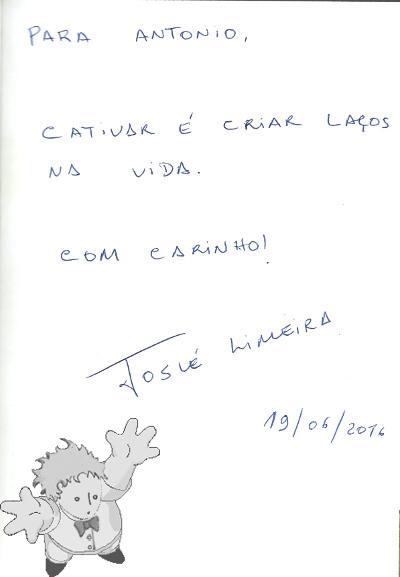 PARA ANTONIO,
CATIVAR É CRIAR LAÇOS
NA VIDA.
COM CARINHO!
JOSUÉ LIMEIRA
19/06/2016